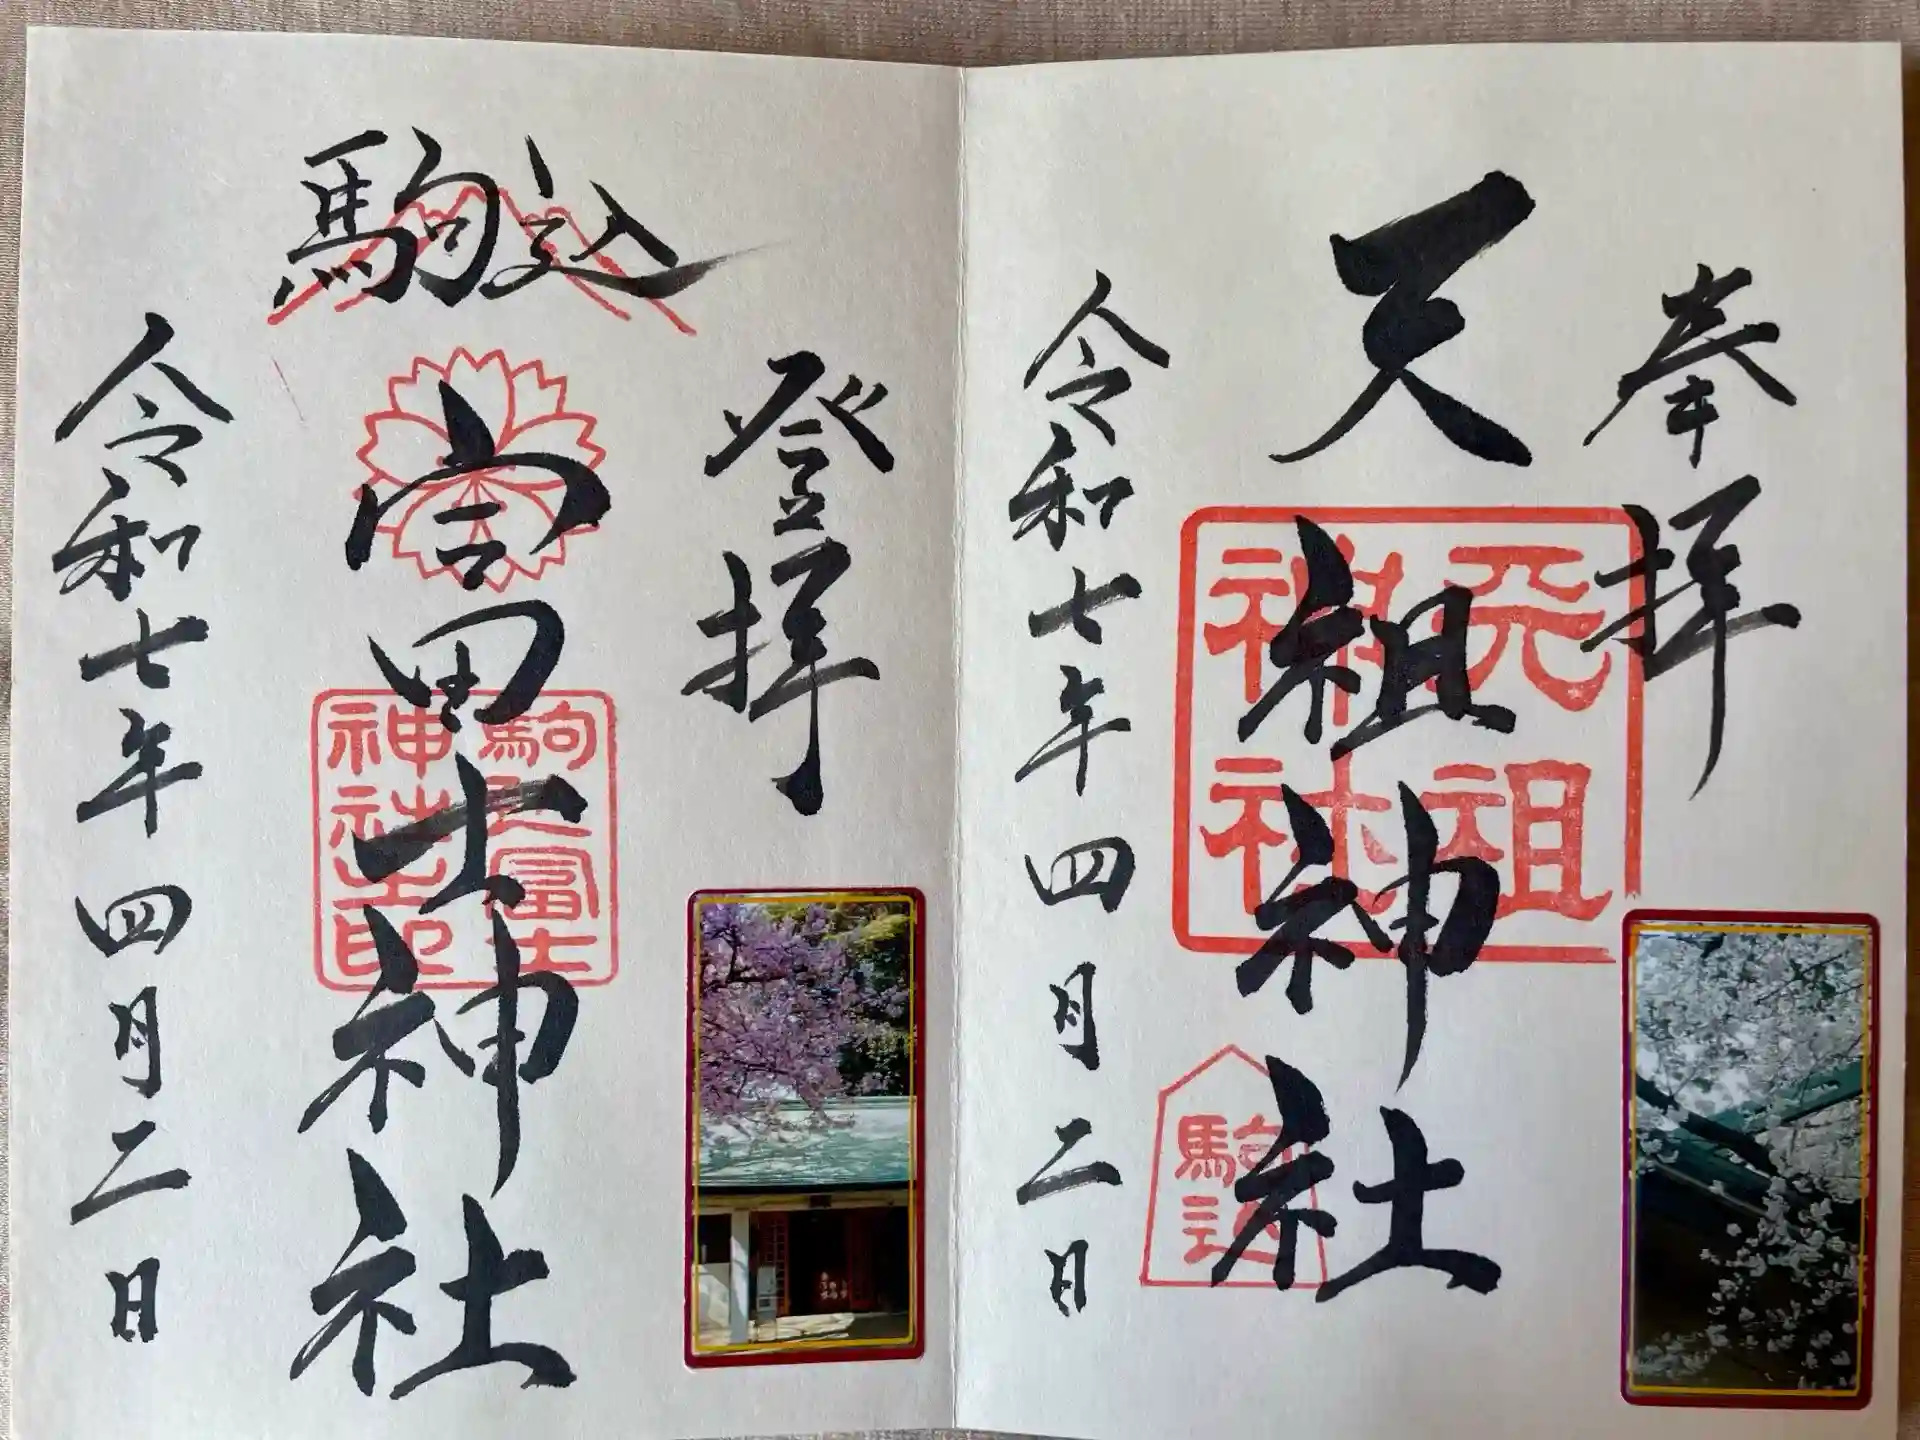 奉拝
天祖神社
天祖
神社
駒込
令和七年四月二日
登拝
駒込
富士神社
駒込富士
神社之印
令和七年四月二日